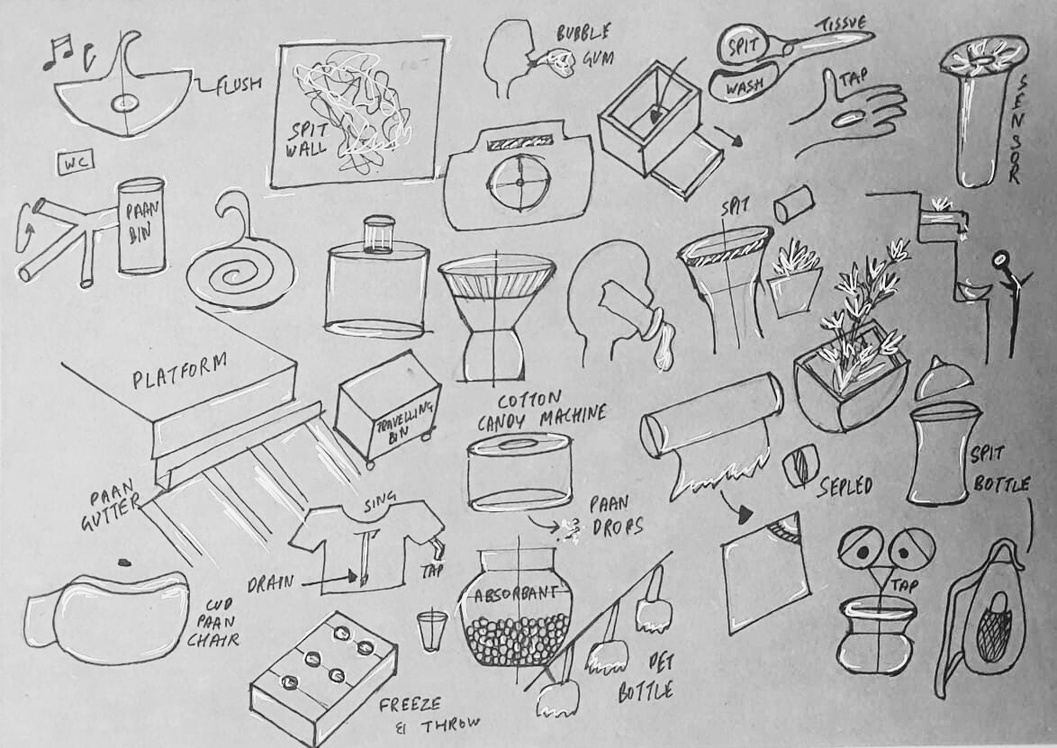 FLUSH
SPIT
WALL
BUBBLE
GUM
SPIT
WASH
TISSUE
TAP
SENSOR
WC
PAAN
BIN
SPIT
PLATFORM
TRAVELLING
BIN
COTTON
CANDY MACHINE
PAAN
GUTTER
SING
DRAIN
TAP
PAAN
DROPS
SEPLED
SPIT
BOTTLE
CUD
PAAN
CHAIR
ABSORBANT
TAP
PET
BOTTLE
FREEZE
& THROW